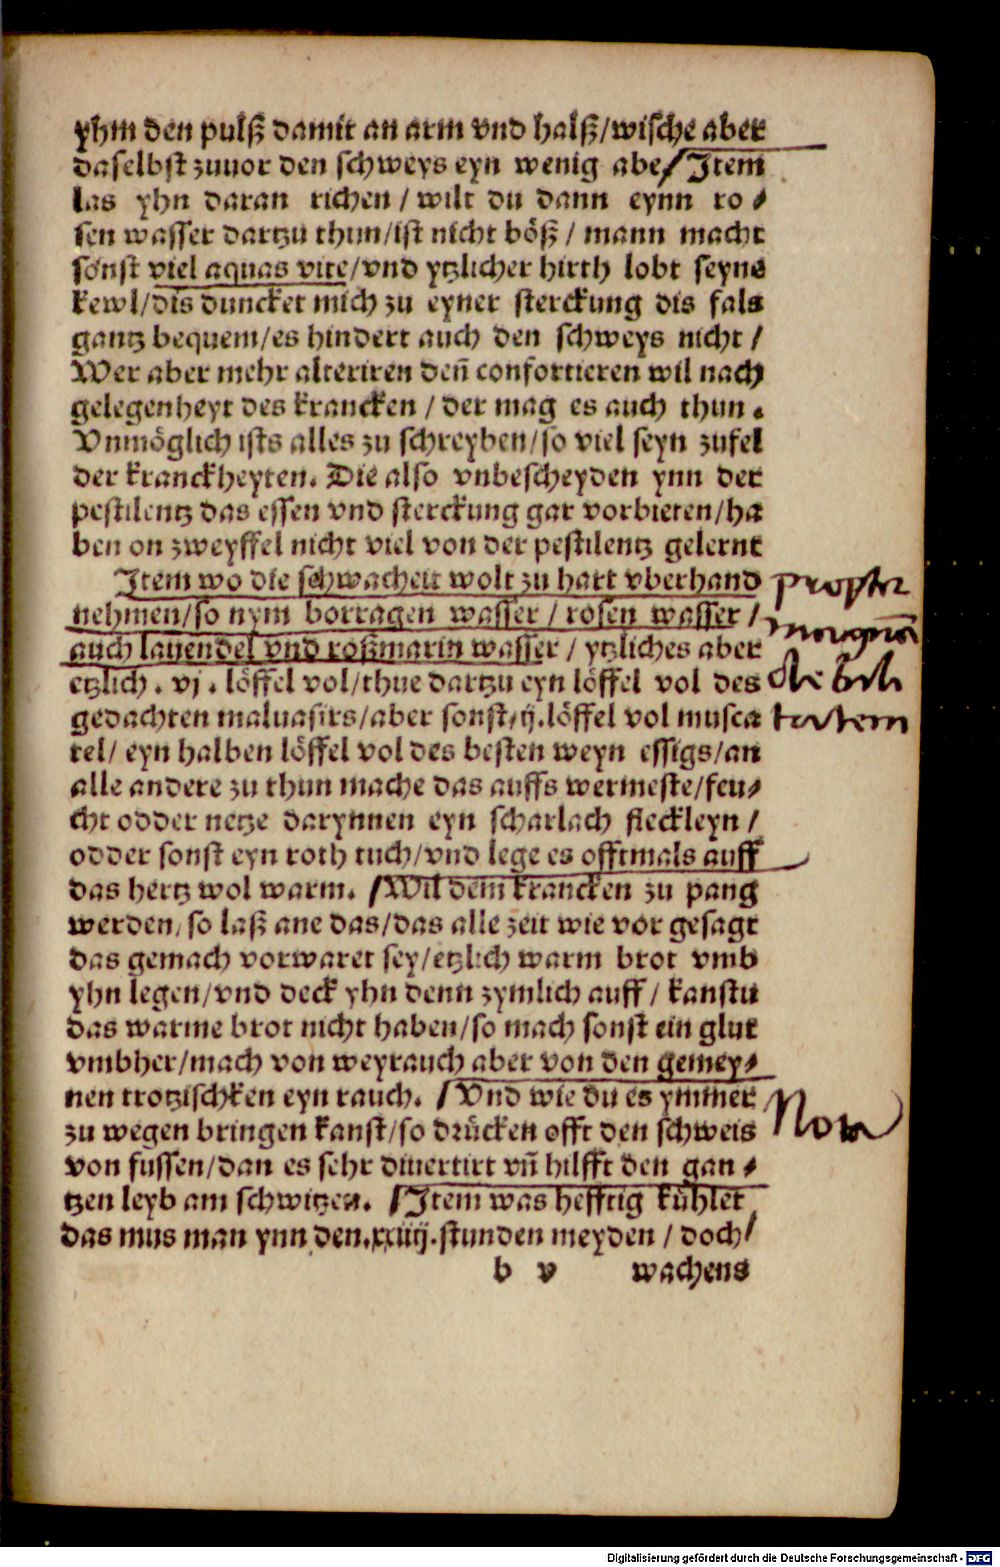 yhm den pulß damit an arm vnd halß/wische aber
daselbst zuuor den schweys eyn wenig abe/Item
las yhn daran richen/wilt du dann eynn ro⸗
sen wasser dartzu thun/ist nicht böß/mann macht
sonst viel aquas vite/vnd ytzlicher hirth lobt seyne
kewl/dis duncket mich zu eyner sterckung dis fals
gantz bequem/es hindert auch den schweys nicht/
Wer aber mehr alteriren deñ confortieren wil nach
gelegenheyt des krancken/der mag es auch thun.
Vnmöglich ists alles zu schreyben/so viel seyn zufel
der kranckheyten. Die also vnbescheyden ynn der
pestilentz das essen vnd sterckung gar vorbieten/ha
ben on zweyffel nicht viel von der pestilentz gelernt
Item wo die schwacheit wolt zu hart vberhand
nehmen/so nym borragen wasser/rosen wasser/
auch lauendel vnd roßmarin wasser/ytzliches aber
etzlich. vj. löffel vol/thue dartzu eyn löffel vol des
gedachten maluasirs/aber sonst ij.löffel vol musca
tel/eyn halben löffel vol des besten weyn essigs/an
alle andere zu thun mache das auffs wermeste/feu⸗
cht odder netze darynnen eyn scharlach fleckleyn/
odder sonst eyn roth tuch/vnd lege es offtmals auff
das hertz wol warm. /Wil dem krancken zu pang
werden/so laß ane das/das alle zeit wie vor gesagt
das gemach vorwaret sey/etzlich warm brot vmb
yhn legen/vnd deck yhn denn zymlich auff/kanstu
das warme brot nicht haben/so mach sonst ein glut
vmbher/mach von weyrauch aber von den gemey⸗
nen trotzischken eyn rauch. /Vnd wie du es ymmer
zu wegen bringen kanst/so drücken offt den schweis
von fussen/dan es sehr diuertirt vñ hilfft den gan⸗
tzen leyb am schwitzen. /Item was hefftig kühlet
das mus man ynn den.xxiiij.stunden meyden/doch/
b v wachens
propter
magnã
debili
tatem
Nota
Digitalisierung gefördert durch die Deutsche Forschungsgemeinschaft - DFG